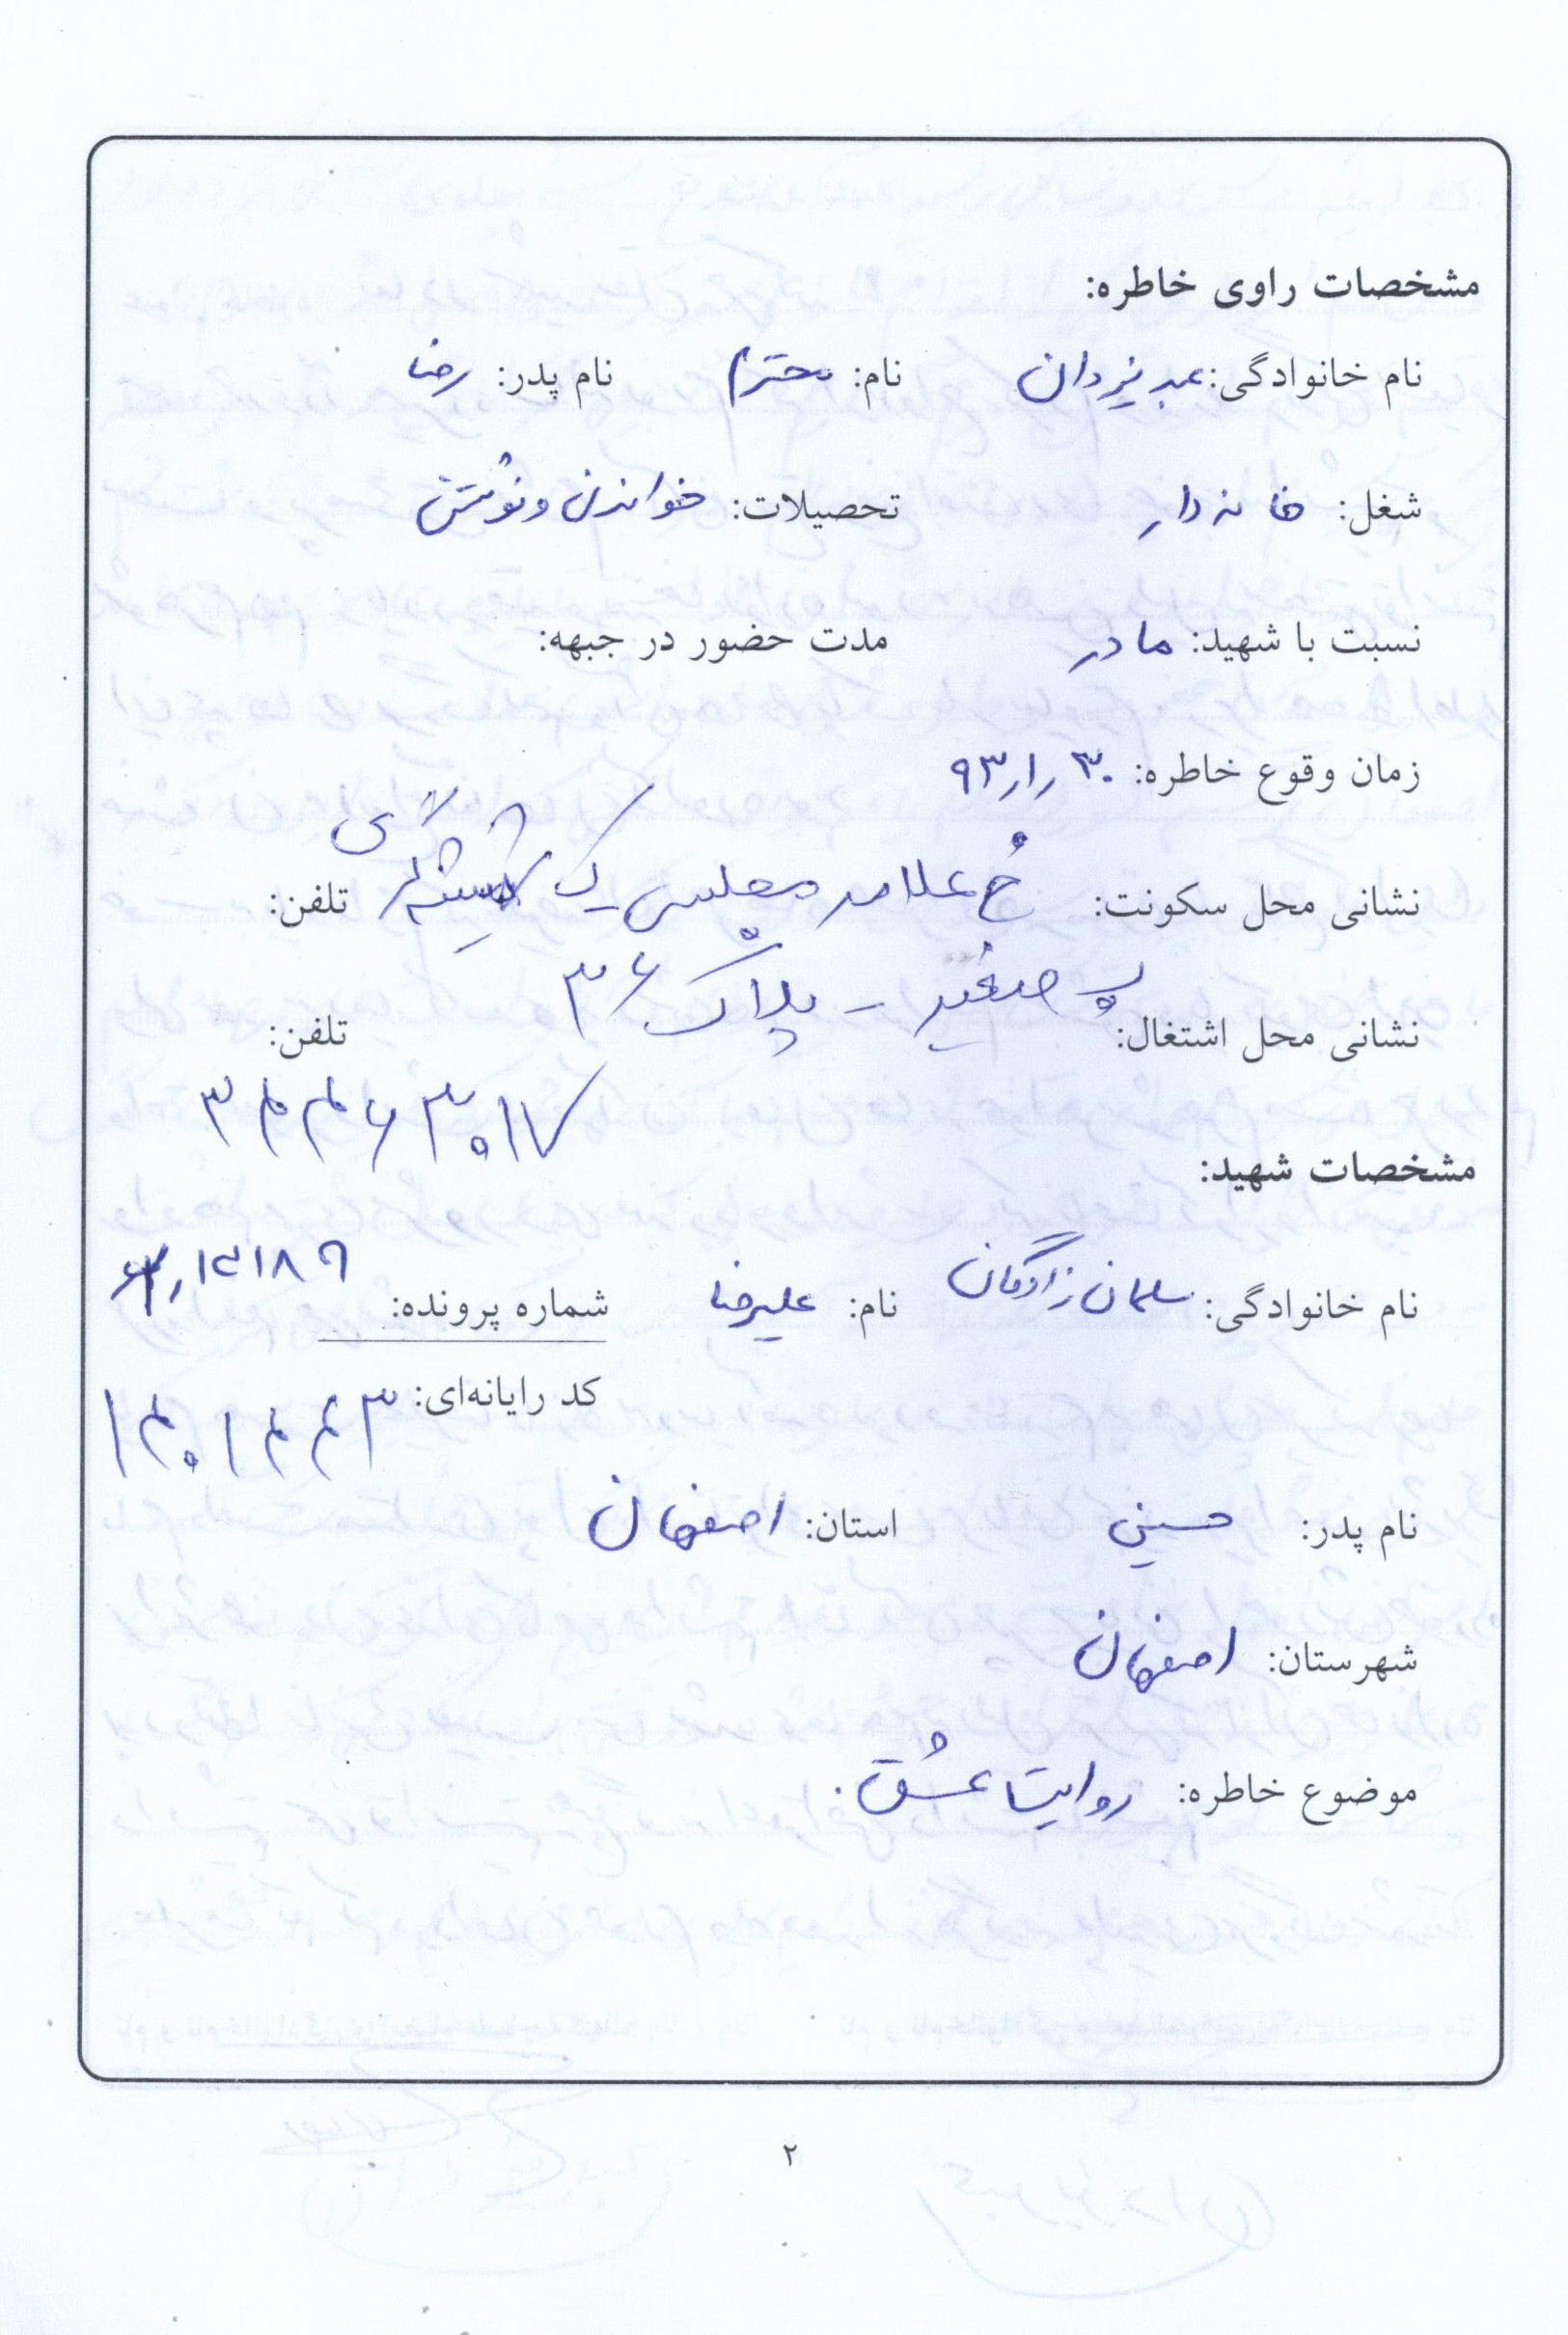 مشخصات راوی خاطره:
نام خانوادگی: عبدیزدان نام: محترم نام پدر: رضا
شغل: خانه دار تحصیلات: خواندن و نوشتن
نسبت با شهید: مادر مدت حضور در جبهه:
زمان وقوع خاطره: ۹۳/۱/۳۰
نشانی محل سکونت: خ علامه مجلسی ک تلفن:
پ صغیر - پلاک ۳۶
نشانی محل اشتغال: تلفن:
۳۴۴۶۳۰۱۷
مشخصات شهید:
نام خانوادگی: سلمان زادگان نام: علیرضا شماره پرونده:
کد رایانه‌ای: ۱۴۰۱۴۴۳
نام پدر: حسین استان: اصفهان
شهرستان: اصفهان
موضوع خاطره: روایت عشق.
۲